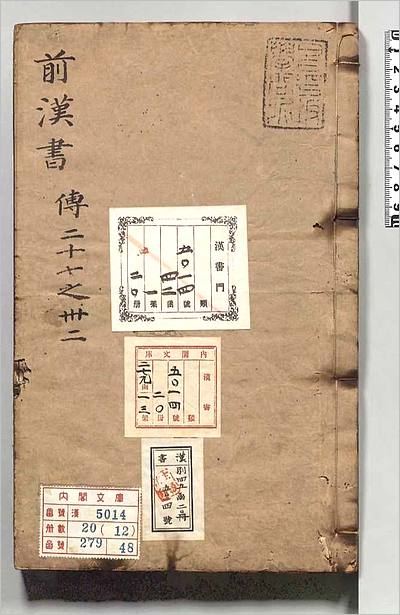 前漢書 傳二十七之卅二
漢書門
五〇一四
類
號
函
架
冊
二〇
內閣文庫
漢書
五〇一四
類
號
二〇
冊
二七九
函
一三
架
漢書
四號
內閣文庫
番號 漢 5014
冊數 20(12)
函號 279 48